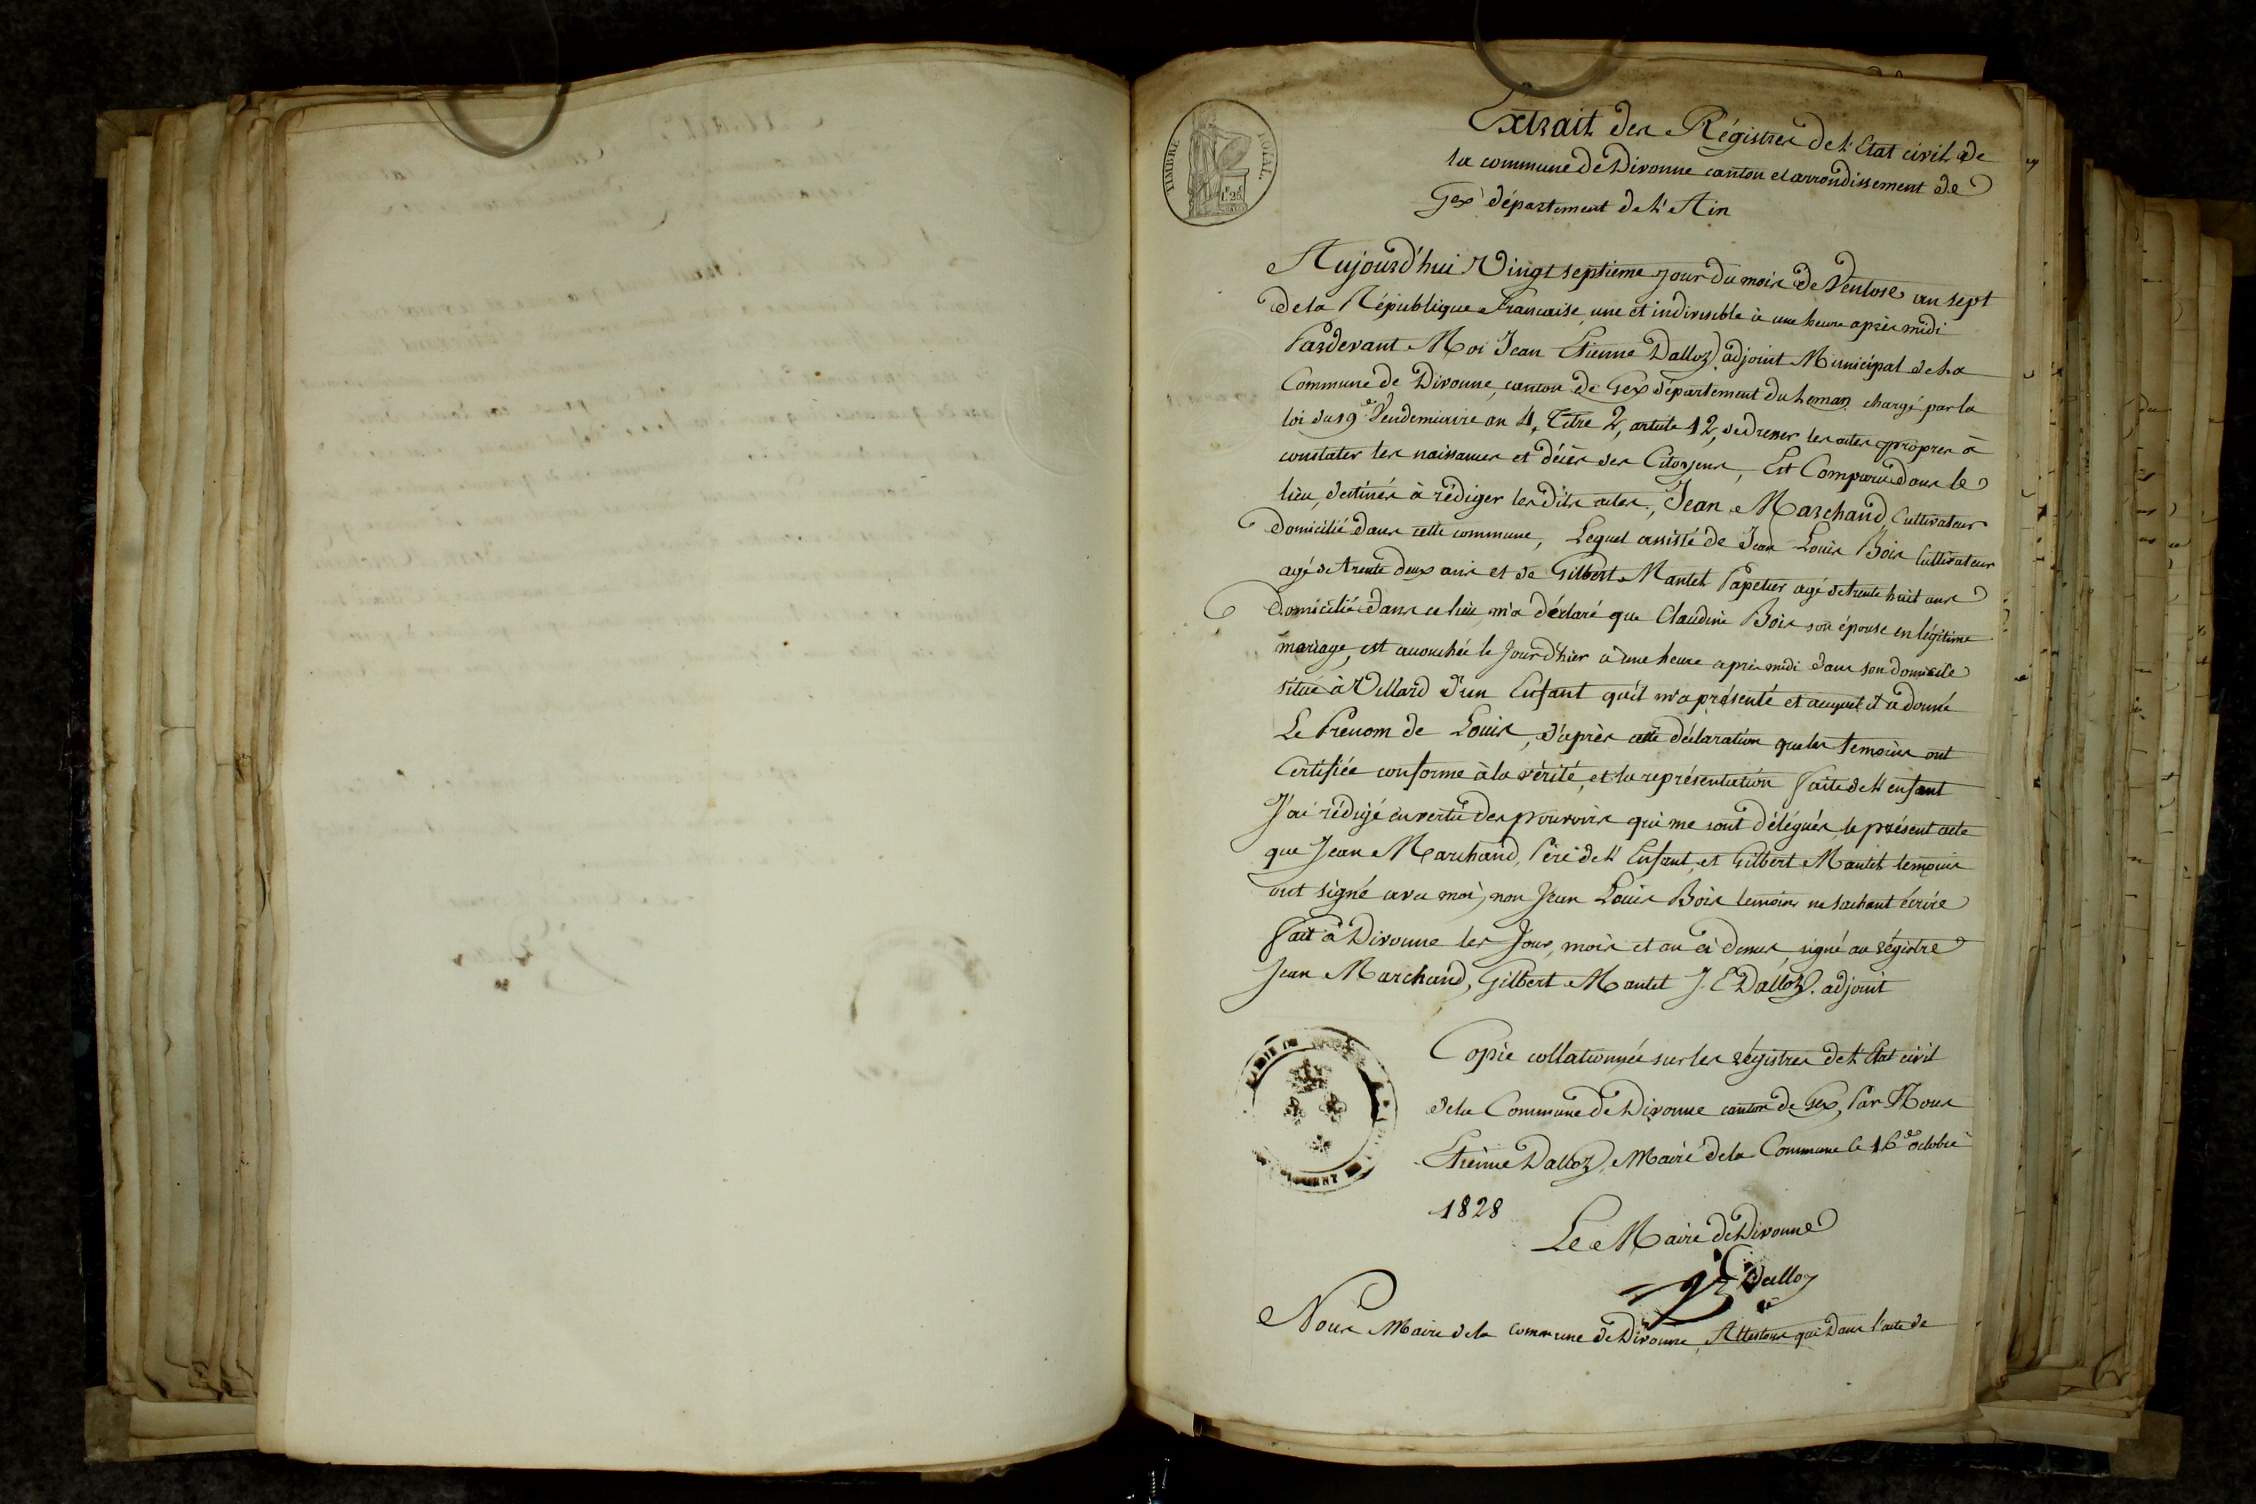 TIMBRE ROYAL
1f. 25c
Extrait des Régistres de l'Etat civil de
la commune de Divonne canton et arrondissement de
Gex département de l'Ain
Aujourd'hui Vingt septieme jour du mois de Ventose an sept
de la République Francaise, une et indivisible à une heure après midi
Pardevant Moi Jean Etienne Dalloz adjoint Municipal de la
Commune de Divonne, canton de Gex département du Leman chargé par la
loi du 19e Vendemiaire an 4, Titre 2, article 12, de dresser les actes propres à
constater les naissances et décès des Citoyens, Est Comparu dans le
lieu, destinés à rédiger les dits actes, Jean Marchand Cultivateur
domicilié dans cette commune, Lequel assisté de Jean Louis Bois Cultivateur
agé de trente deux ans et de Gilbert Mantel Papetier agé de trente huit ans
Domicilié dans ce lieu, m'a déclaré que Claudine Bois son épouse en légitime
mariage, est accouchée le jour d'hier à une heure après midi dans son domicile
situé à Villard d'un Enfant qu'il m'a présenté et auquel il a donné
Le Prenom de Louis, d'après cette déclaration que les temoins ont
Certifiée conforme à la vérité, et la représentation faite de l'enfant
J'ai rédigé en vertu des pouvoirs qui me sont délégués, le présent acte
que Jean Marchand, Père de l'Enfant, et Gilbert Mantel temoin
ont signé avec moi, non Jean Louis Bois temoins ne sachant écrire
fait à Divonne les Jour, mois et an ci dessus, signé au régistre
Jean Marchand, Gilbert Mantel J. E Dalloz. adjoint
Copie collationnée sur les régistres de l'Etat civil
de la Commune de Divonne canton de Gex, Par Nous
Etienne Dalloz, Maire de la Commune le 16e octobre
1828
Le Maire de Divonne
Dalloz
MAIRIE DE
Nous Maire de la commune de Divonne, Attestons que dans l'acte de